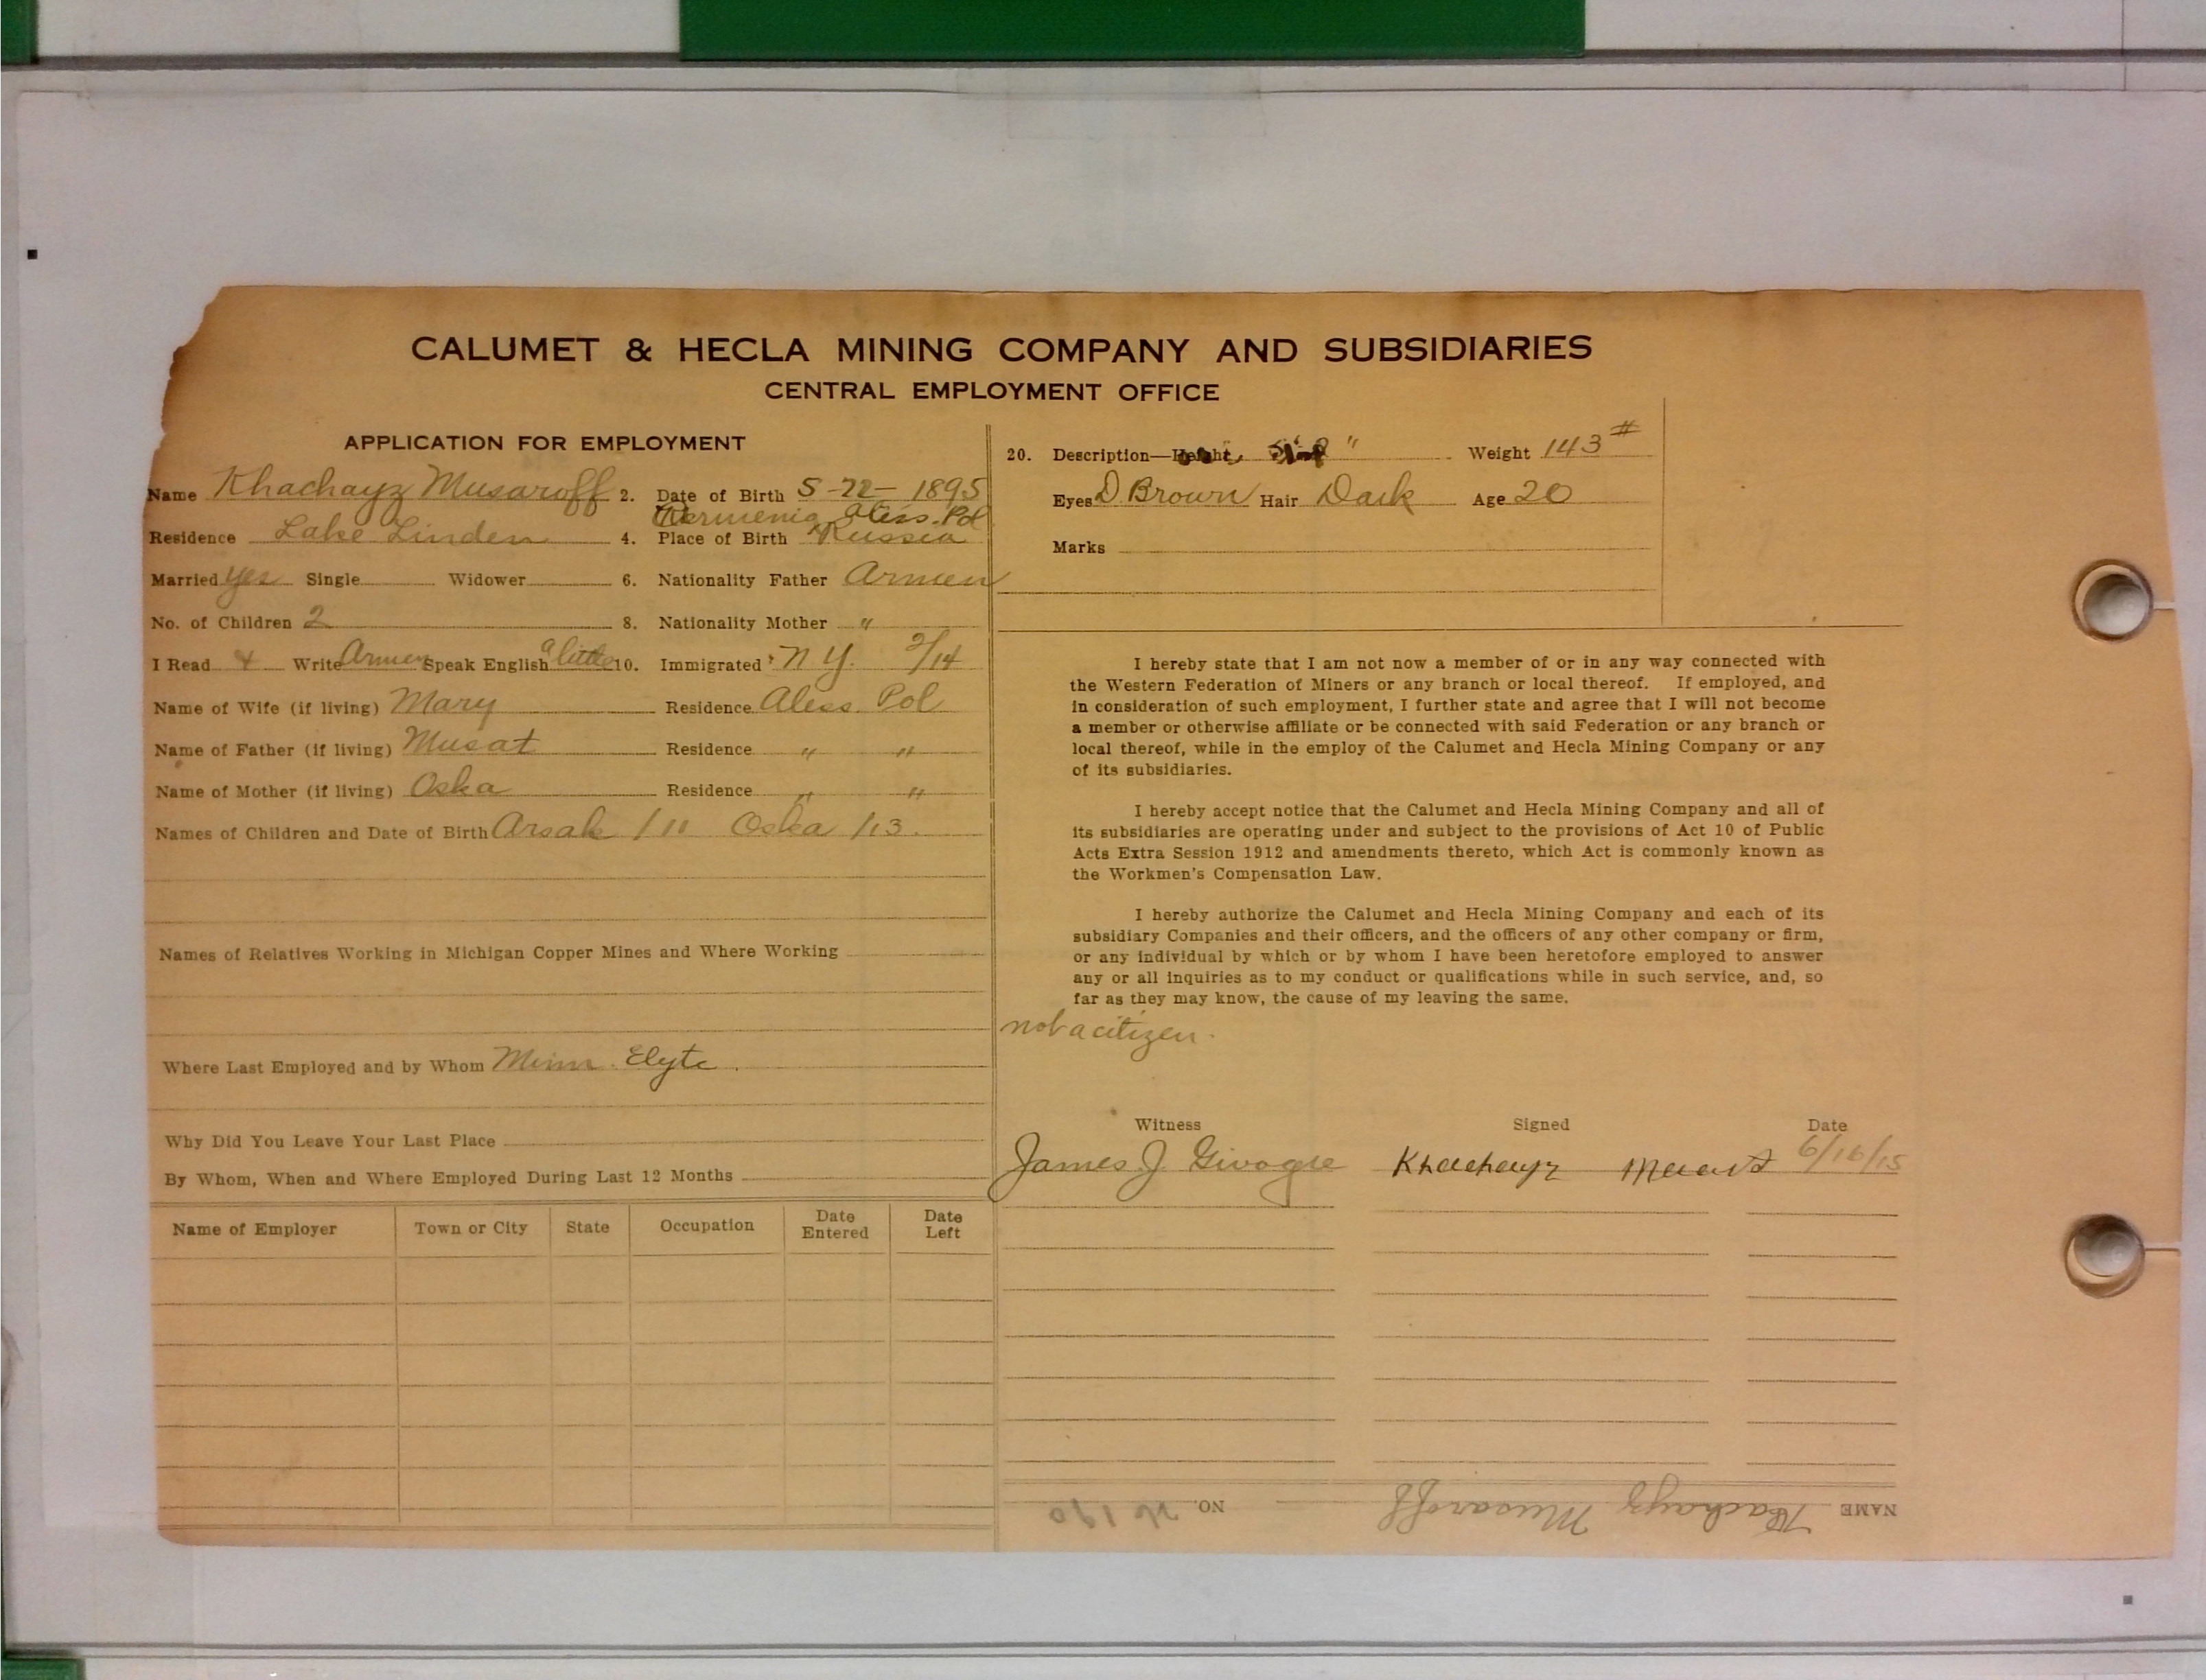 CALUMET & HECLA MINING COMPANY AND SUBSIDIARIES
CENTRAL EMPLOYMENT OFFICE
APPLICATION FOR EMPLOYMENT
Name Khachayz Musaroff 2. Date of Birth 5-22-1895
Armenia Aless. Pol
Residence Lake Linden 4. Place of Birth Russia
Married yes Single Widower 6. Nationality Father Armen
No. of Children 2 8. Nationality Mother "
I Read & Write Armen Speak English a little 10. Immigrated N.Y. 2/14
Name of Wife (if living) Mary Residence Aless. Pol
Name of Father (if living) Musat Residence " "
Name of Mother (if living) Oska Residence " "
Names of Children and Date of Birth Arsak /11 Oska /13.
Names of Relatives Working in Michigan Copper Mines and Where Working
Where Last Employed and by Whom Minn. Elyte.
Why Did You Leave Your Last Place
By Whom, When and Where Employed During Last 12 Months
Name of Employer Town or City State Occupation Date Entered Date Left
20. Description—Height " Weight 143#
Eyes D. Brown Hair Dark Age 20
Marks
I hereby state that I am not now a member of or in any way connected with
the Western Federation of Miners or any branch or local thereof. If employed, and
in consideration of such employment, I further state and agree that I will not become
a member or otherwise affiliate or be connected with said Federation or any branch or
local thereof, while in the employ of the Calumet and Hecla Mining Company or any
of its subsidiaries.
I hereby accept notice that the Calumet and Hecla Mining Company and all of
its subsidiaries are operating under and subject to the provisions of Act 10 of Public
Acts Extra Session 1912 and amendments thereto, which Act is commonly known as
the Workmen's Compensation Law.
I hereby authorize the Calumet and Hecla Mining Company and each of its
subsidiary Companies and their officers, and the officers of any other company or firm,
or any individual by which or by whom I have been heretofore employed to answer
any or all inquiries as to my conduct or qualifications while in such service, and, so
far as they may know, the cause of my leaving the same.
not a citizen.
Witness Signed Date
James J. Khachayz 6/16/15
NAME Khachayz Musaroff NO.